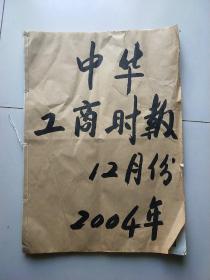 中华
工商时报
12月份
2004年